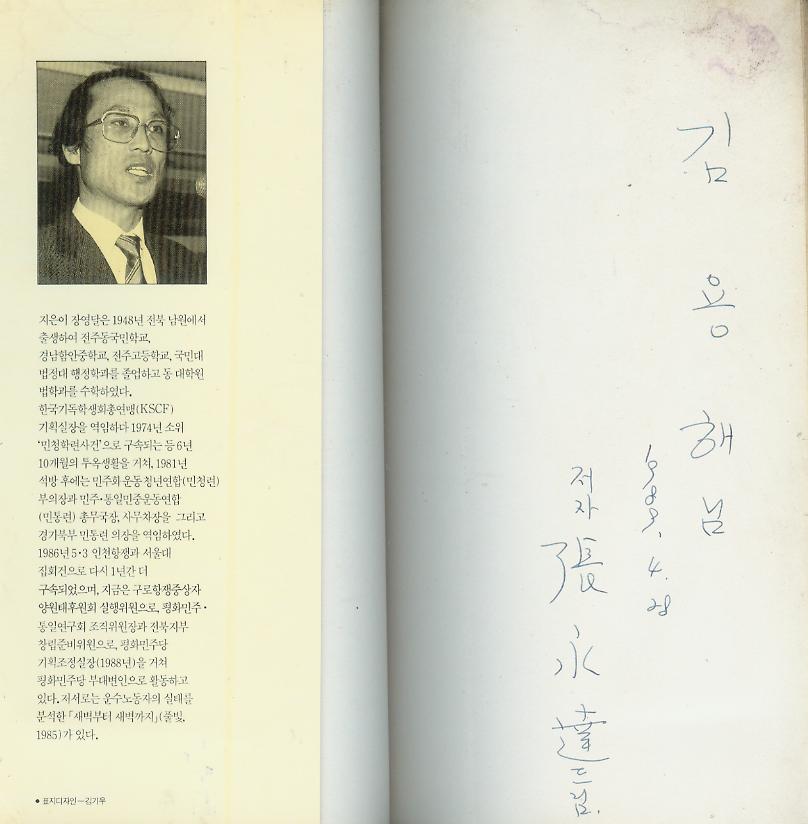 지은이 장영달은 1948년 전북 남원에서
출생하여 전주동국민학교,
경남함안중학교, 전주고등학교, 국민대
법정대 행정학과를 졸업하고 동 대학원
법학과를 수학하였다.
한국기독학생회총연맹(KSCF)
기획실장을 역임하다 1974년 소위
'민청학련사건'으로 구속되는 등 6년
10개월의 투옥생활을 거쳐, 1981년
석방 후에는 민주화운동청년연합(민청련)
부의장과 민주·통일민중운동연합
(민통련) 총무국장, 사무차장을 그리고
경기북부 민통련 의장을 역임하였다.
1986년 5·3 인천항쟁과 서울대
집회건으로 다시 1년간 더
구속되었으며, 지금은 구로항쟁중상자
양원태후원회 실행위원으로, 평화민주·
통일연구회 조직위원장과 전북지부
창립준비위원으로, 평화민주당
기획조정실장(1988년)을 거쳐
평화민주당 부대변인으로 활동하고
있다. 저서로는 운수노동자의 실태를
분석한 「새벽부터 새벽까지」(풀빛,
1985)가 있다.
● 표지디자인—김기우
김용해님
저자 張永達드림.